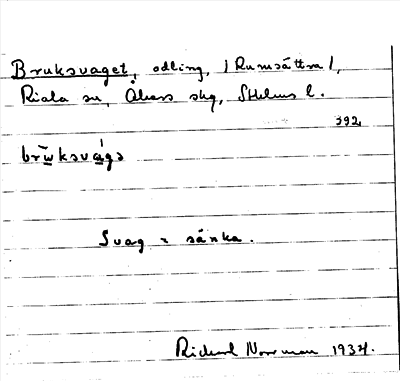 Bruksvaget, odling, (Rumsättra),
Riala sn, Åkers skg, Sthlms l.
392
brūksvágs
Svag = sänka.
Richard Norrman 1934.